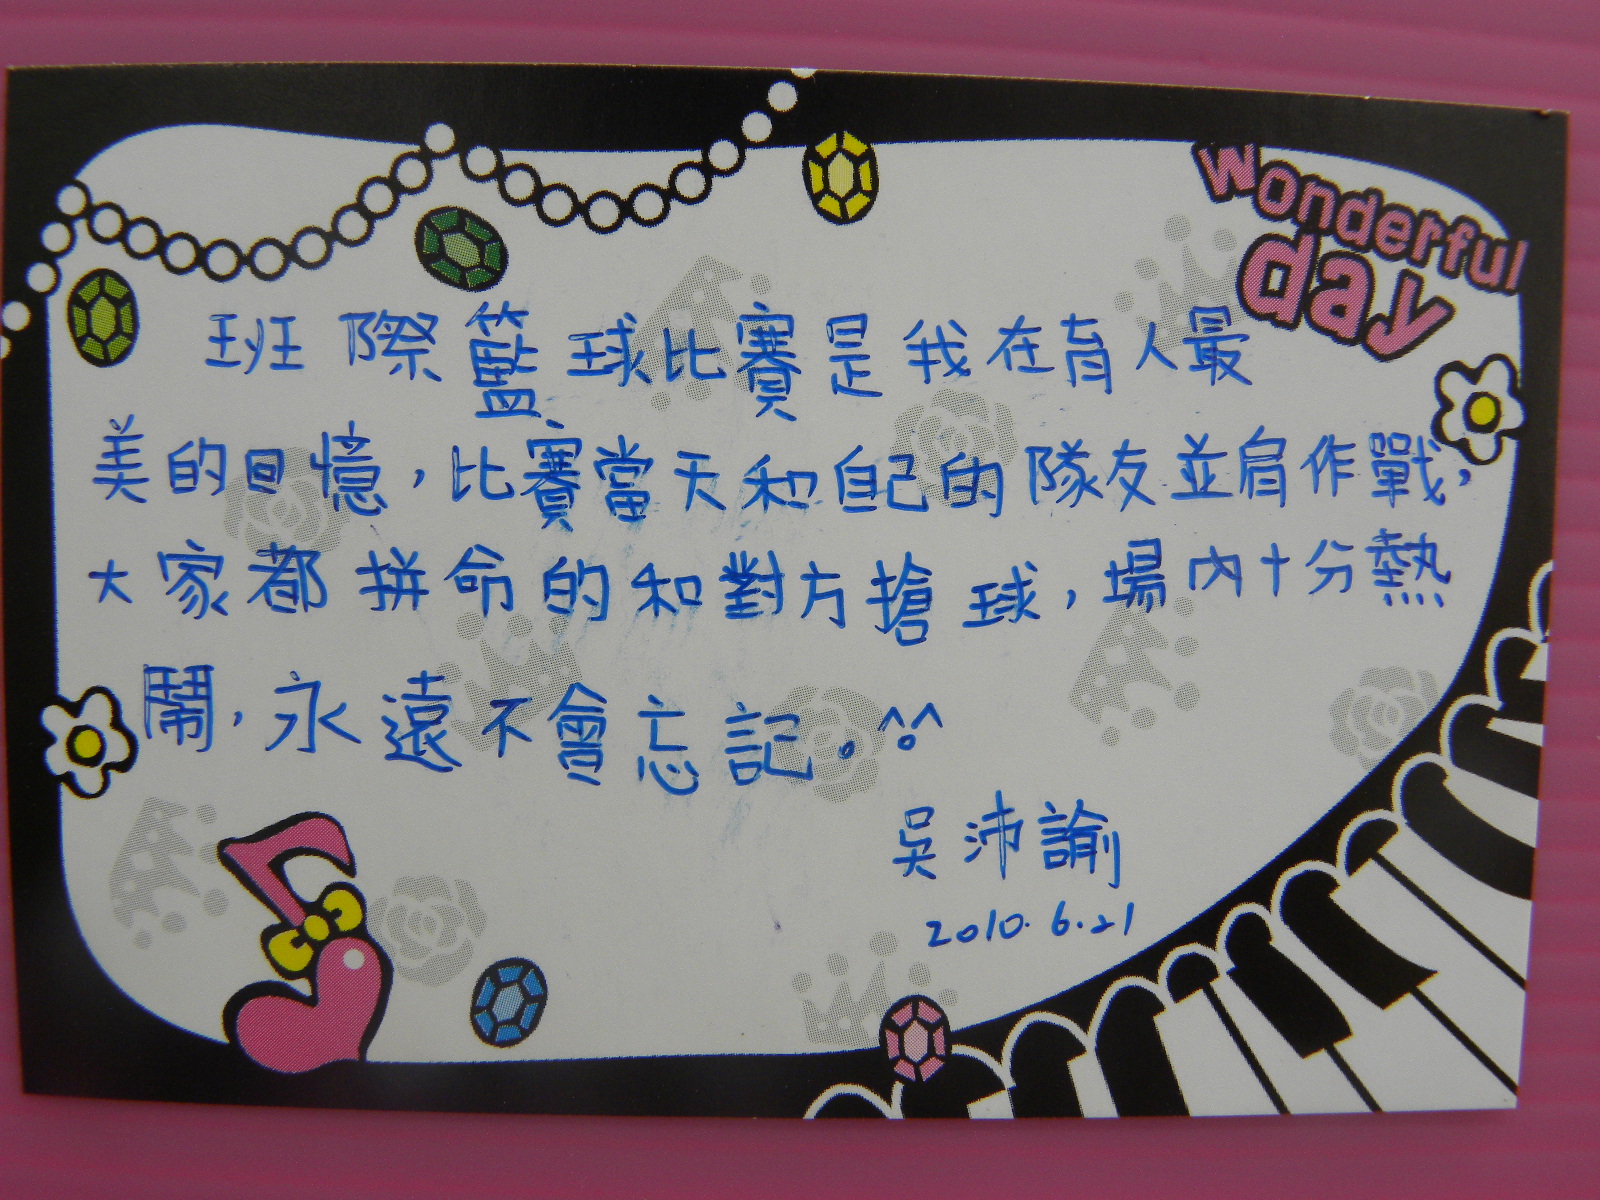 wonderful
day
班際籃球比賽是我在育人最
美的回憶,比賽當天和自己的隊友並肩作戰,
大家都拼命的和對方搶球,場內十分熱
鬧,永遠不會忘記。^^
吳沛諭
2010.6.21